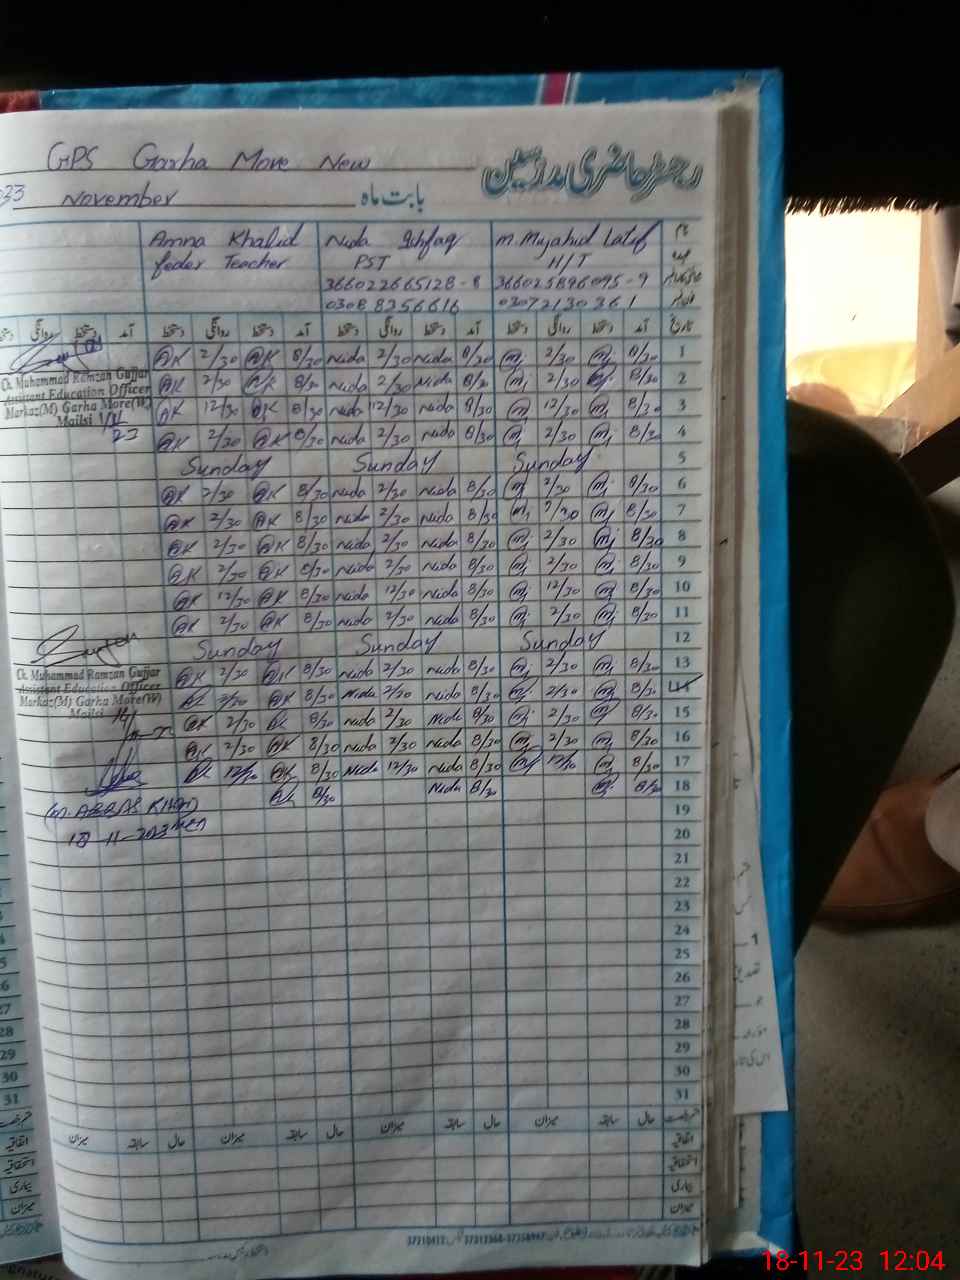 GPS Garha More New رجسٹر حاضری مدرسین
November بابت ماہ
Amna Khalid Nida Ishfaq M. Mujahid Latif نام
feder Teacher PST H/T عہدہ
366022665128-8 366025896095-9
0308 8256616 03072130361
دستخط روانگی دستخط آمد دستخط روانگی دستخط آمد دستخط روانگی دستخط آمد دستخط روانگی دستخط آمد تاریخ
AK 2/30 AK 8/30 Nida 2/30 Nida 8/30 M 2/30 M 8/30 1
Ch. Muhammad Ramzan Gujjar
Assistent Education Officer
Markaz(M) Garha More(W)
Mailsi
AK 2/30 AK 8/30 Nida 2/30 Nida 8/30 M 2/30 8/30 2
AK 12/30 AK 8/30 Nida 12/30 Nida 8/30 M 12/30 M 8/30 3
AK 2/30 AK 8/30 Nida 2/30 Nida 8/30 M 2/30 M 8/30 4
Sunday Sunday Sunday 5
AK 2/30 AK 8/30 Nida 2/30 Nida 8/30 M 2/30 M 8/30 6
AK 2/30 AK 8/30 Nida 2/30 Nida 8/30 M 2/30 M 8/30 7
AK 2/30 AK 8/30 Nida 2/30 Nida 8/30 M 2/30 M 8/30 8
AK 2/30 AK 8/30 Nida 2/30 Nida 8/30 M 2/30 M 8/30 9
AK 12/30 AK 8/30 Nida 12/30 Nida 8/30 M 12/30 M 8/30 10
AK 2/30 AK 8/30 Nida 2/30 Nida 8/30 M 2/30 M 8/30 11
Sunday Sunday Sunday 12
AK 2/30 AK 8/30 Nida 2/30 Nida 8/30 M 2/30 M 8/30 13
Ch. Muhammad Ramzan Gujjar
Assistent Education Officer
Markaz(M) Garha More(W)
Mailsi
AK 2/30 AK 8/30 Nida 2/30 Nida 8/30 M 2/30 M 8/30 14
AK 2/30 AK 8/30 Nida 2/30 Nida 8/30 M 2/30 M 8/30 15
AK 2/30 AK 8/30 Nida 2/30 Nida 8/30 M 2/30 M 8/30 16
AK 12/30 AK 8/30 Nida 12/30 Nida 8/30 M 12/30 M 8/30 17
AK 8/30 Nida 8/30 M 8/30 18
(M. ABBAS KHAN)
18-11-2023
19
20
21
22
23
24
25
26
27
28
29
30
31
میزان سابقہ حال میزان سابقہ حال میزان سابقہ حال میزان سابقہ حال
اتفاقیہ
استحقاقیہ
بیماری
میزان
18-11-23 12:04